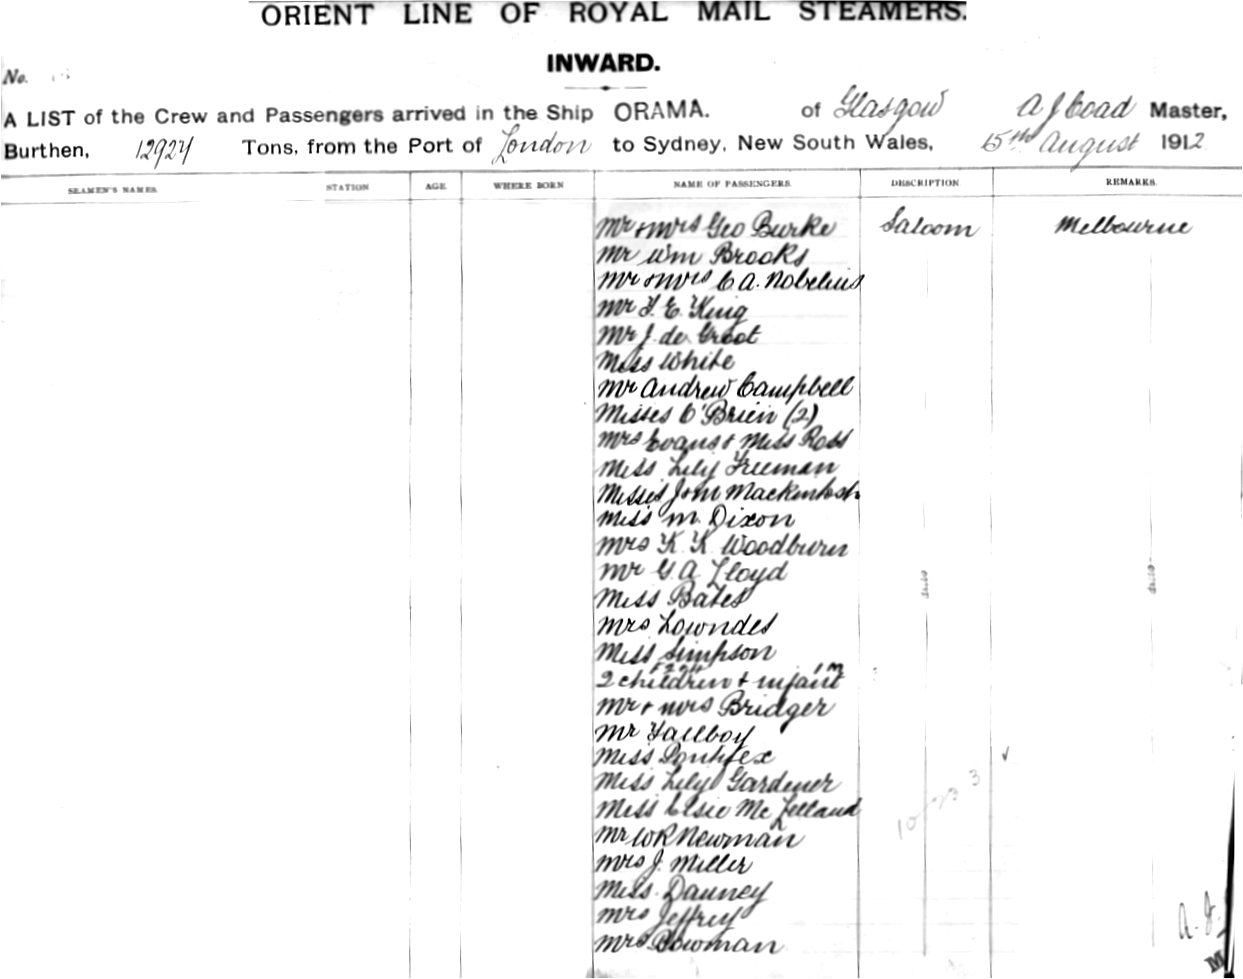 ORIENT LINE OF ROYAL MAIL STEAMERS.
INWARD.
No.
A LIST of the Crew and Passengers arrived in the Ship ORAMA. of Glasgow A J Coad Master,
Burthen, 12927 Tons, from the Port of London to Sydney, New South Wales, 15th August 1912
SEAMEN'S NAMES STATION AGE WHERE BORN NAME OF PASSENGERS DESCRIPTION REMARKS.
Mr & Mrs Geo Burke Saloom Melbourne
Mr Wm Brooks
Mr & Mrs C A. Nobelius
Mr F. E. King
Mr J. de Groot
Miss White
Mr Andrew Campbell
Misses O'Brien (2)
Mrs Evans & Miss Ross
Miss Lily Freeman
Misses J & M Mackintosh
Miss M. Dixon
Mrs K. K. Woodburn
Mr G. A Lloyd
Miss Bates
Mrs Lowndes
Miss Simpson
2 children & infant
Mr & Mrs Bridger
Mr Tallboy
Miss Pontifex
Miss Lily Gardener
Miss Elsie Mc Lelland
Mr W R Newman
Mrs J. Miller
Miss Dauney
Mrs Jeffrey
Mrs Bowman